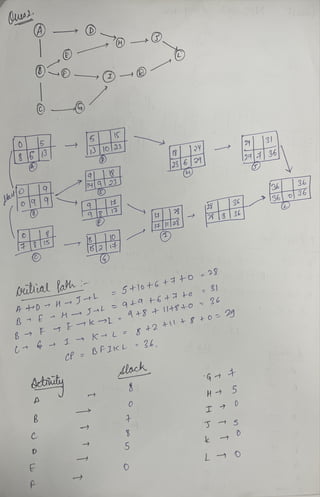 Ques:
A → D
E → H → J
B → F → I → K → L
C → G
0 5
8 5 13
A
5 15
13 10 23
D
18 24
25 6 29
H
24 31
29 7 36
J
0 9
0 9 9
B
9 18
14 9 23
E
9 17
9 8 17
F
17 28
17 11 28
I
28 36
28 8 36
36 36
36 0 36
L
Start
0 8
7 8 15
C
8 10
15 2 17
G
Critical Path :-
A → D → H → J → L = 5+10+6+7+0 = 28
B → E → H → J → L = 9+9+6+7+0 = 31
B → F → I → K → L = 9+8+11+8+0 = 36
C → G → I → K → L = 8+2+11+8+0 = 29
CP = BFIKL = 36.
Activity Slack
A → 8
B → 0
C → 7
D → 8
E → 5
F → 0
G → 7
H → 5
I → 0
J → 5
K → 0
L → 0